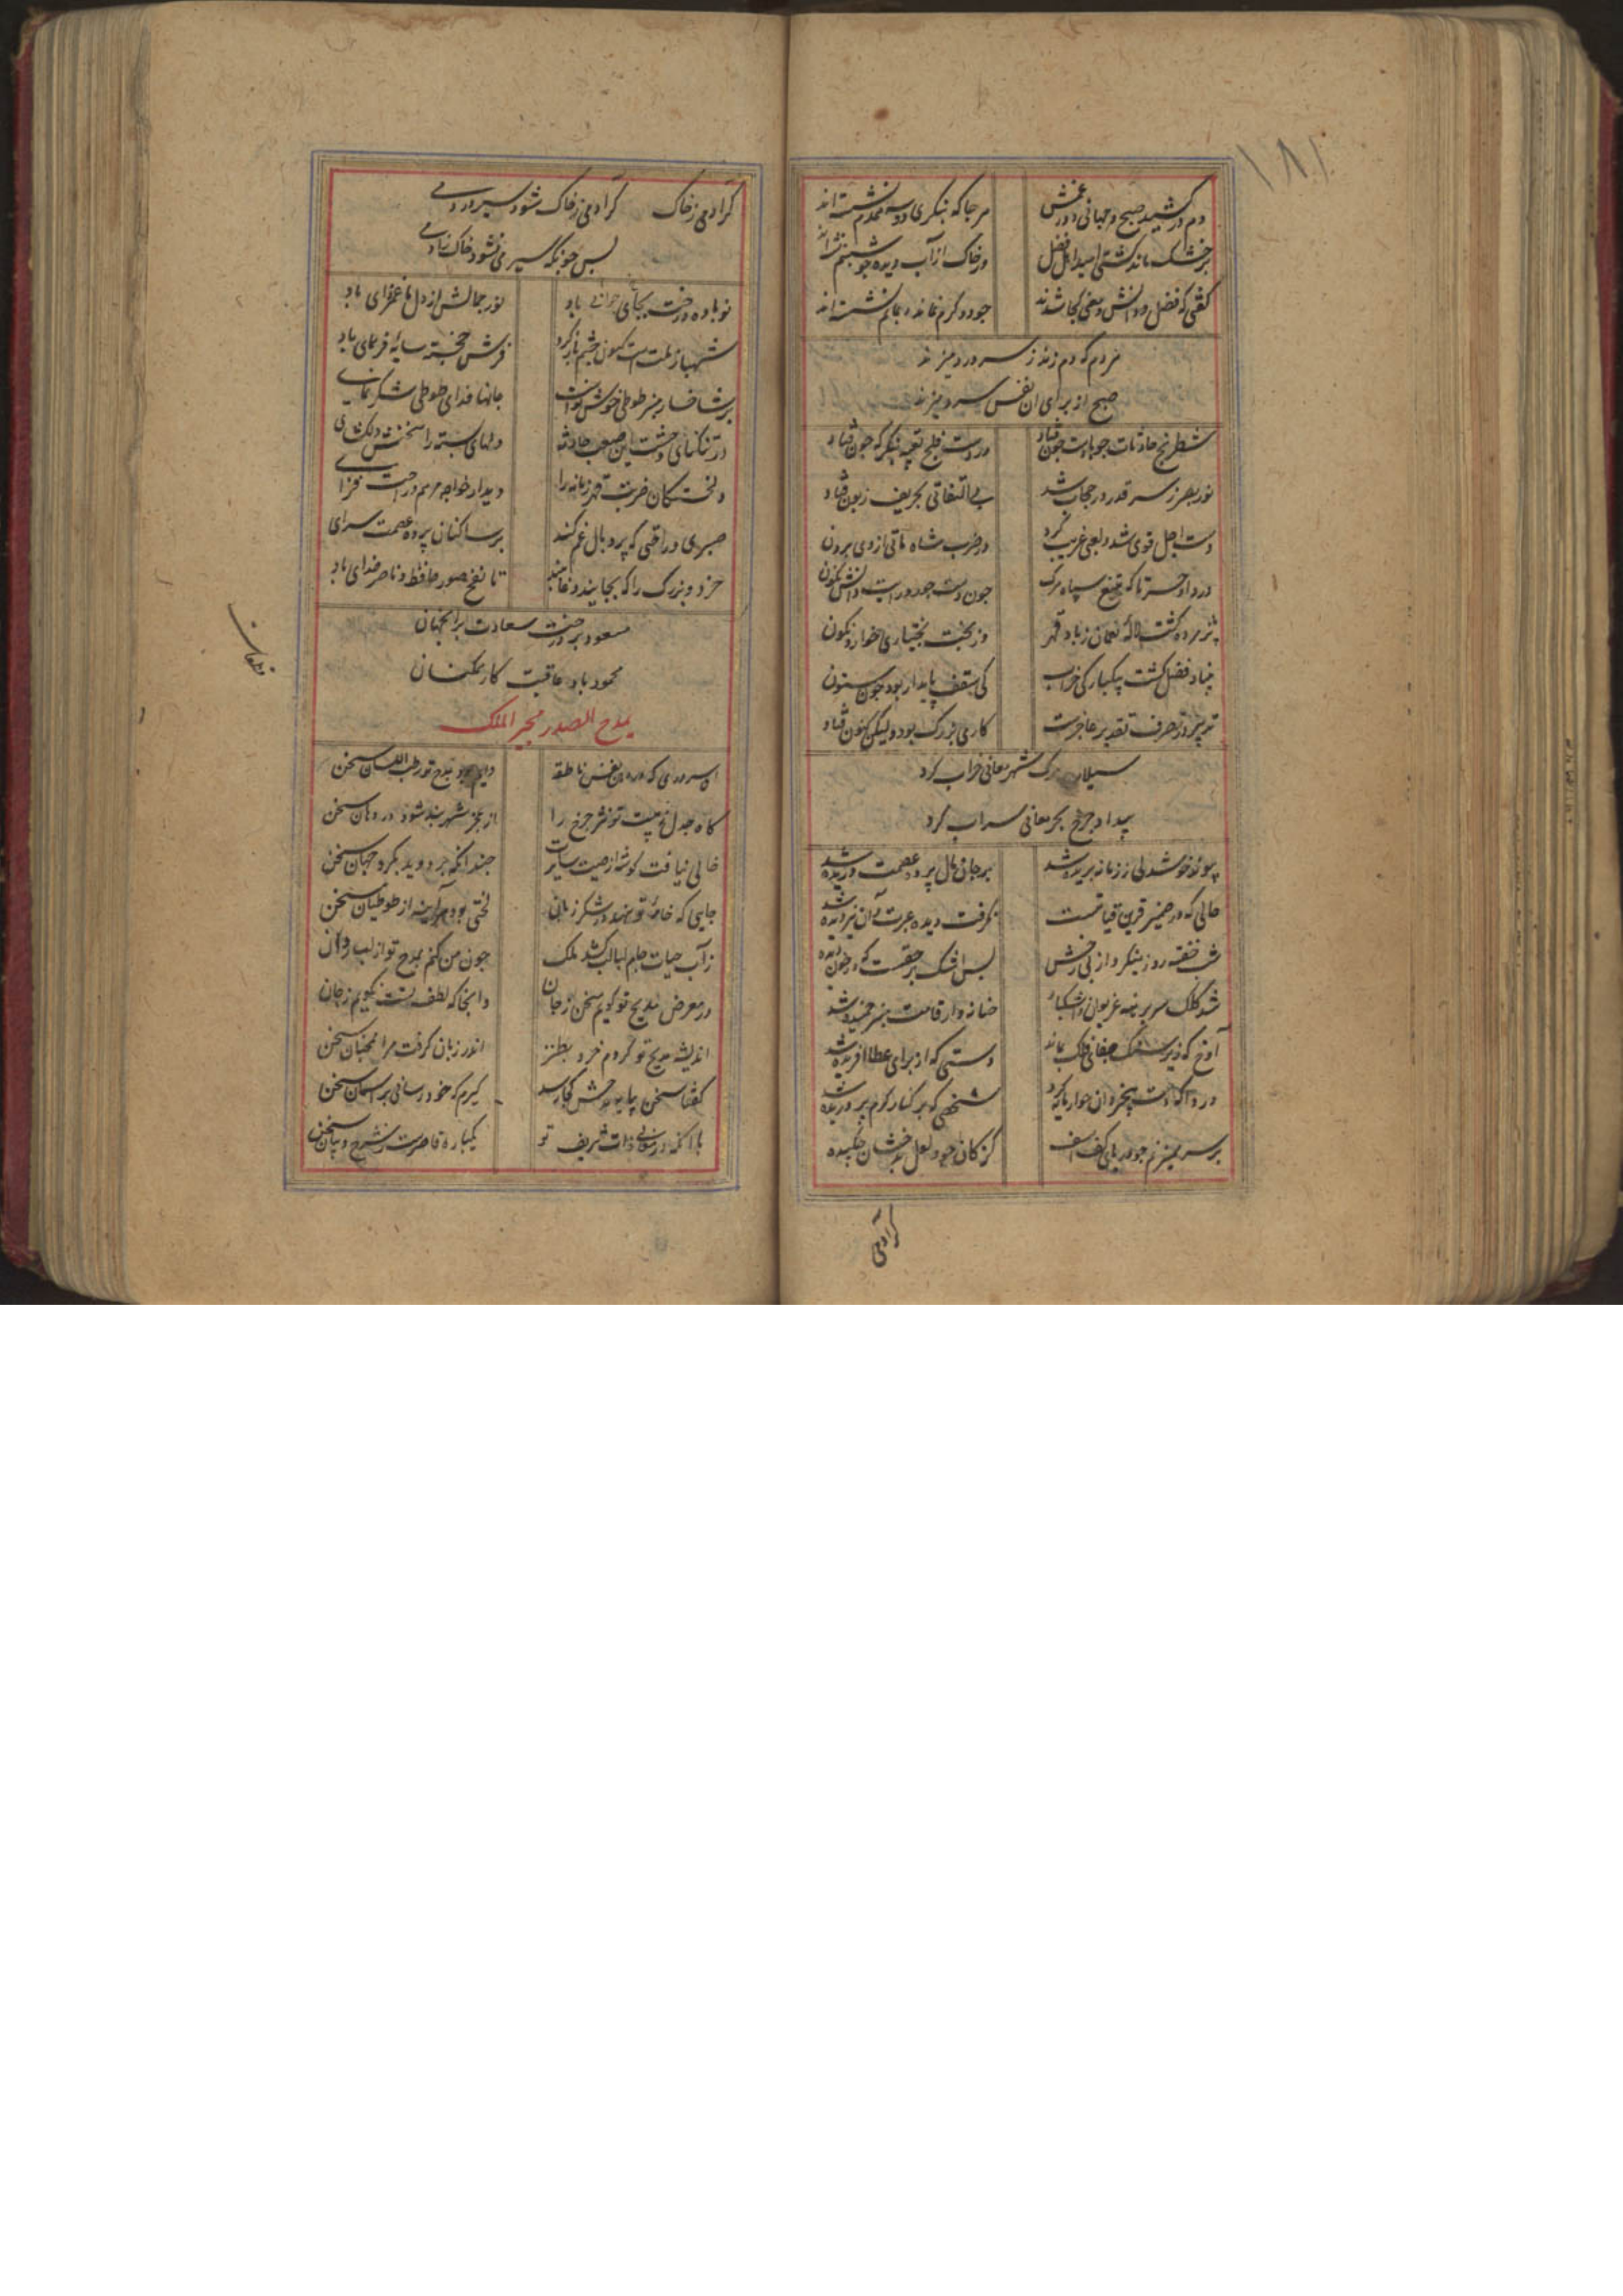 ۱۸۱
دم در کشید صبح و جهانی در غمش هر جا که بنگری دو سه همدم نشسته‌اند
بر خشک ماند کشتی امید اهل فضل در خاک از آب دیده چو شبنم نشسته‌اند
گفتی که فضل و دانش و معنی کجا شدند جود و کرم نماند، بماتم نشسته‌اند
مردم که دم زند ز سر درد میزند
صبح از برای آن نفس سرد میزند
شطرنج حادثات چو باخت چون فتاد در دست فلج تعبیه بنگر که چون فتاد
نور بصر ز سر قدر در حجاب شد بی التفاتی بحریف زبون فتاد
دست اجل قوی شد و لعبی غریب کرد در ضرب شاه ماتی ازوی برون
دردا و حسرتا که تیغ سپاه مرگ چون دست جود رایت دانش نگون
پژمرده گشت لاله نعمان ز باد قهر وز بخت بختیاری خوار و نگون
بنیاد فضل گشت بیکبارگی خراب کی سقف پایدار بود چون ستون
تدبیر در تصرف تقدیر عاجزست کاری بزرگ بود ولیکن کنون فتاد
سیلاب مرگ شهر معانی خراب کرد
بیداد چرخ بحر معانی سراب کرد
پیوند خوشدلی ز زمانه بریده شد بر جان مال پرده عصمت دریده شد
حالی که در ضمیر قرین قیامتست نگرفت دیده عبرت و آن نیز دیده شد
شب خفته روز بنگر و از پی رخش بس اشک بر حقست که در خون دیده
شد کلک سر بریده غریوان و اشکبار چنانه وار قامت هنر خمیده شد
آوخ که زیر سنگ جفای فلک بماند دستی که از برای عطا آفریده شد
دردا که دست پنجره آن خوار باز کرد شخصی که بر کنار کرم پروریده شد
بر سر همیزنم چو در یای کف اسف کز کان جود لعل بدخشان چکیده
گر آدمی
گر آدمی ز خاک گر آدمی ز خاک شود سیر در دمی
بس چونکه سیر می نشود خاک ز آدمی
نوباوه درخت بجای جوانی باد نور جمالش از دل ما غمزدای باد
شهباز ملت است کنون چشم باز کرد فرش خجسته سایه فرمای باد
بر شاخسار هنر طوطی خوش نواست جانها فدای طوطی شکرخای
در تنگنای وحشت این صعب حادثه دلهای بسته را سخنش دلگشای
دلخستگان ضربت قهر زمانه را دیدار خواجه مرهم راحت فزای
صبری در افتی که پر و بال غم کند بر ساکنان پرده عصمت سرای
خرد و بزرگ را که بجایند و غایبند تا نفخ صور حافظ و ناصر خدای باد
مسعود بر درخت سعادت برانجهان
محمود باد عاقبت کار همگنان
یمدح الصدر مجیر الملک
ای سروری که در دهن نفس ناطقه دایم بود بمدح تو رطب اللسان سخن
گاه جدل نهیبت تو نثر چرخ را از عجز شهربند شود در دهان سخن
خالی نیافت گوشه از صیت سایرت چندانکه بر دوید بگرد جهان سخن
جایی که خامه تو بود شکر زبان لختی بود هر آینه از طوطیان سخن
ز آب حیات جام لبالب کشد ملک چون من کنم بمدح تو از لب روان
در معرض مدیح تو گویم سخن ز جان و انجا که لطف تست نگویم ز جان
اندیشه مدیح تو کردم خرد بطنز اندر زبان گرفت مرا همچنان سخن
گفتا سخن بپایه مدحش کجا رسد گیرم که خود رسانی بر آسمان سخن
با آنکه در ثنای ذات شریف تو یکباره قاصرست ز شرح و بیان سخن
قطعات